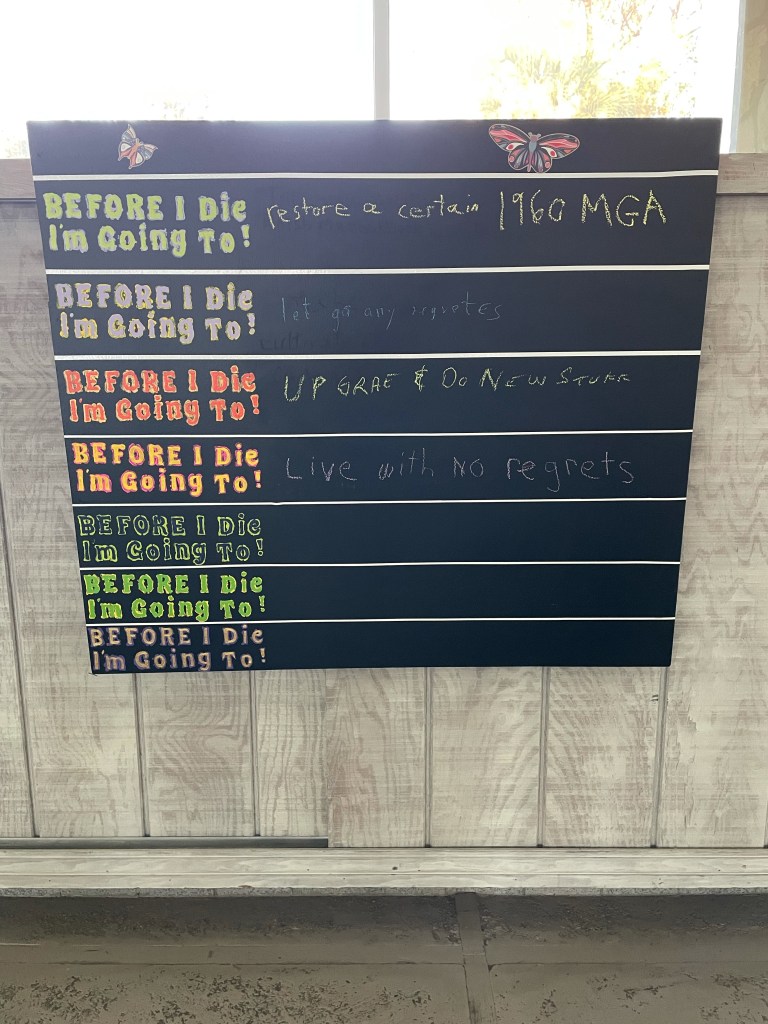 BEFORE I Die
I'm Going To!
restore a certain 1960 MGA
BEFORE I Die
I'm Going To!
let go any regretes
BEFORE I Die
I'm Going To!
UP GRAE & DO NEW STUFF
BEFORE I Die
I'm Going To!
Live with NO regrets
BEFORE I Die
I'm Going To!
BEFORE I Die
I'm Going To!
BEFORE I Die
I'm Going To!